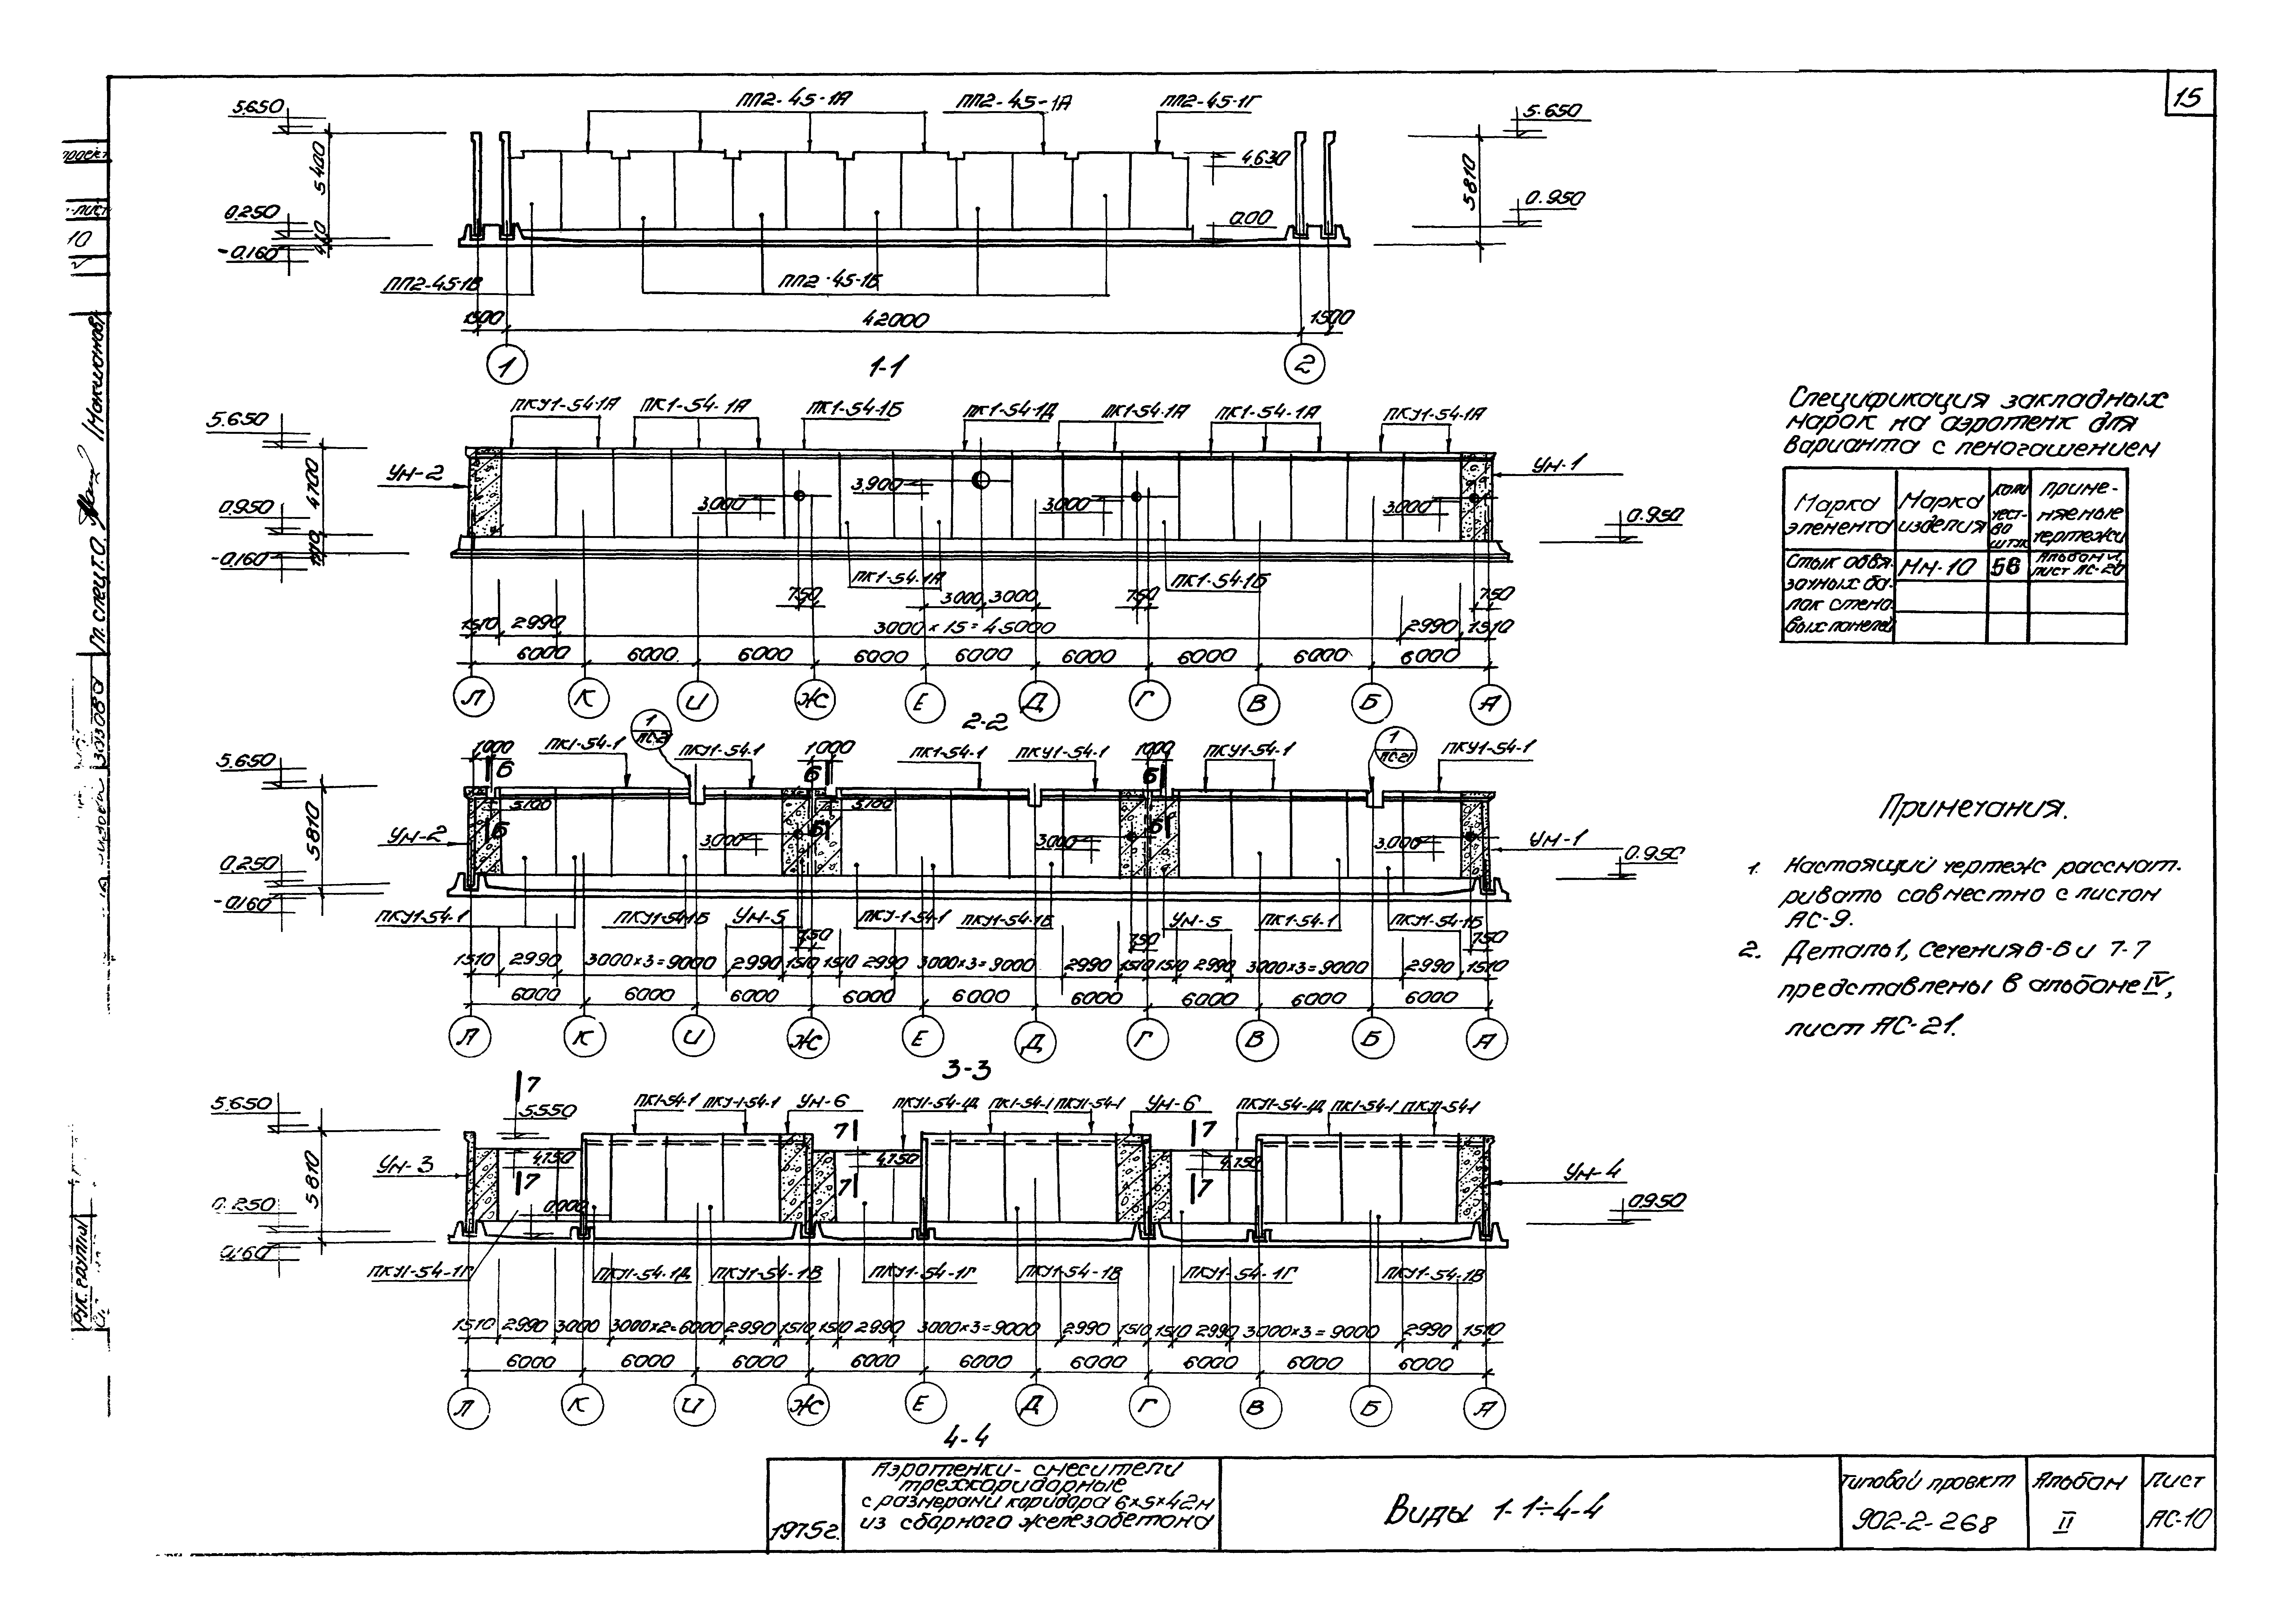 15
5.650
5400
0.250
410
-0.160
ПП2-45-1А
ПП2-45-1А
ПП2-45-1Г
4.630
0.00
5.650
5810
0.950
ПП2-45-1В
ПП2-45-1Б
1500
42000
1500
1
2
1-1
5.650
4700
0.950
-0.160
ПКУ1-54-1А
ПК1-54-1А
ПК1-54-1Б
ПК1-54-1Д
ПК1-54-1А
ПК1-54-1А
ПКУ1-54-1А
Ум-2
3.000
3.900
3.000
3.000
Ум-1
0.950
ПК1-54-1А
ПК1-54-1Б
750
3000 3000
750
750
1510 2990
3000×15=45000
2990 1510
6000 6000 6000 6000 6000 6000 6000 6000 6000
Л К И Ж Е Д Г В Б А
2-2
1
1000
ПК1-54-1
ПКУ1-54-1
1000
ПК1-54-1
ПКУ1-54-1
1000
ПКУ1-54-1
1
АС-21
ПКУ1-54-1
5.650
5810
0.250
-0.160
6 6 6
5.100
5.100
6 6 6
Ум-2
3.000
3.000
3.000
Ум-1
0.950
ПКУ1-54-1
ПКУ1-54-1Б
Ум-5
ПКУ-1-54-1
ПКУ1-54-1Б
Ум-5
ПК1-54-1
ПКУ1-54-1Б
750
750
750
1510 2990 3000×3=9000 2990 1510 1510 2990 3000×3=9000 2990 1510 1510 2990 3000×3=9000 2990 1510
6000 6000 6000 6000 6000 6000 6000 6000 6000
Л К И Ж Е Д Г В Б А
3-3
7
5.650
5.550
ПК1-54-1
ПКУ-1-54-1
Ум-6
ПКУ1-54-1Д
ПК1-54-1
ПКУ1-54-1
Ум-6
ПКУ1-54-1Д
ПК1-54-1
ПКУ1-54-1
5810
7 7
4.750
4.750
4.750
Ум-3
7 7 7
Ум-4
0.250
0.000
0.950
0.160
ПКУ1-54-1Г
ПКУ1-54-1Д
ПКУ1-54-1В
ПКУ1-54-1Г
ПКУ1-54-1В
ПКУ1-54-1Г
ПКУ1-54-1В
1510 2990 3000 3000×2=6000 2990 1510 1510 2990 3000×3=9000 2990 1510 1510 2990 3000×3=9000 2990 1510
6000 6000 6000 6000 6000 6000 6000 6000 6000
Л К И Ж Е Д Г В Б А
4-4
Спецификация закладных
марок на аэротенк для
варианта с пеногашением
Марка
элемента
Марка
изделия
коли
чест-
во
штук
приме-
няемые
чертежи
Стык обвя-
зочных ба-
лок стено-
вых панелей
Мн-10
56
Альбом VI,
лист АС-20
Примечания.
1. Настоящий чертеж рассмат.
ривать совместно с листом
АС-9.
2. Деталь 1, сечения 6-6 и 7-7
представлены в альбоме IV,
лист АС-21.
1975г.
Аэротенки-смесители
трехкоридорные
с размерами коридора 6×5×42м
из сборного железобетона
Виды 1-1÷4-4
Типовой проект
902-2-268
Альбом
II
Лист
АС-10
проект
лист
10
Гл. спец. Т.О.
Рук. группы